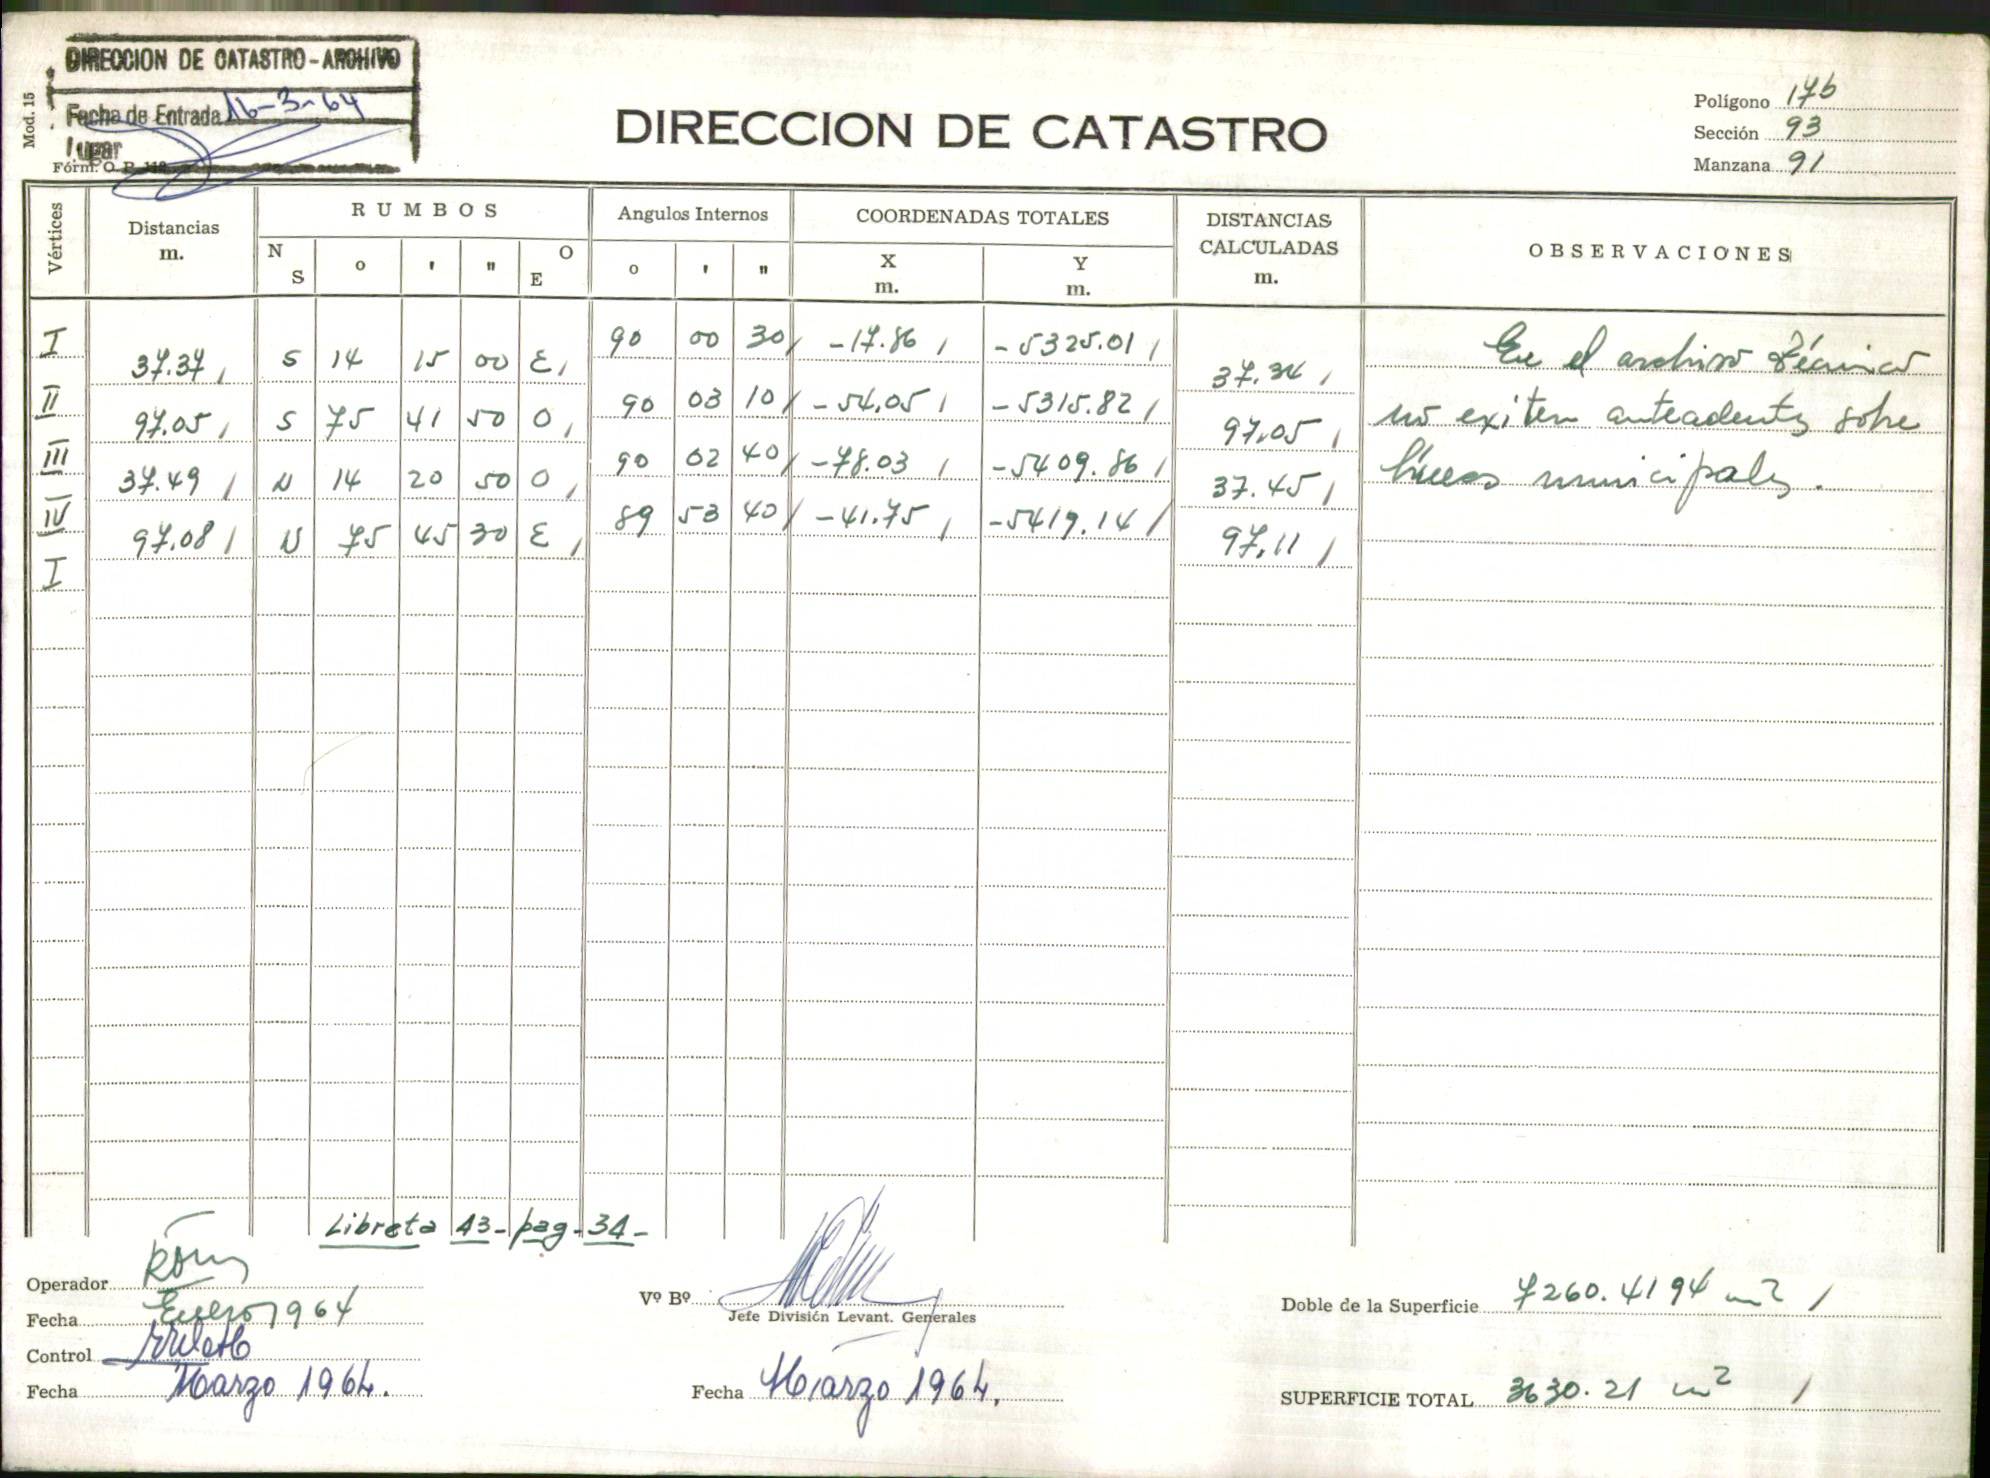 DIRECCION DE CATASTRO - ARCHIVO
Fecha de Entrada 16-3-64
Lugar
Mod. 15
Fórm. O. P. 112
DIRECCION DE CATASTRO
Polígono 176
Sección 93
Manzana 91
Vértices
Distancias
m.
RUMBOS
N S
o ' "
O E
Angulos Internos
o ' "
COORDENADAS TOTALES
X
m.
Y
m.
DISTANCIAS
CALCULADAS
m.
OBSERVACIONES
I 90 00 30 -17.86 -5325.01
37.37 S 14 15 00 E 37.34
II 90 03 10 -54.05 -5315.82
97.05 S 75 41 50 O 97.05
III 90 02 40 -78.03 -5409.86
37.49 N 14 20 50 O 37.45
IV 89 53 40 -41.75 -5419.14
97.08 N 75 45 30 E 97.11
I
En el archivo técnico
no exiten antecedentes sobre
líneas municipales.
Libreta 43- pag-34-
Operador
Fecha Enero 1964
Control
Fecha Marzo 1964.
Vº Bº
Jefe División Levant. Generales
Fecha Marzo 1964.
Doble de la Superficie 7260.4194 m2
SUPERFICIE TOTAL 3630.21 m2